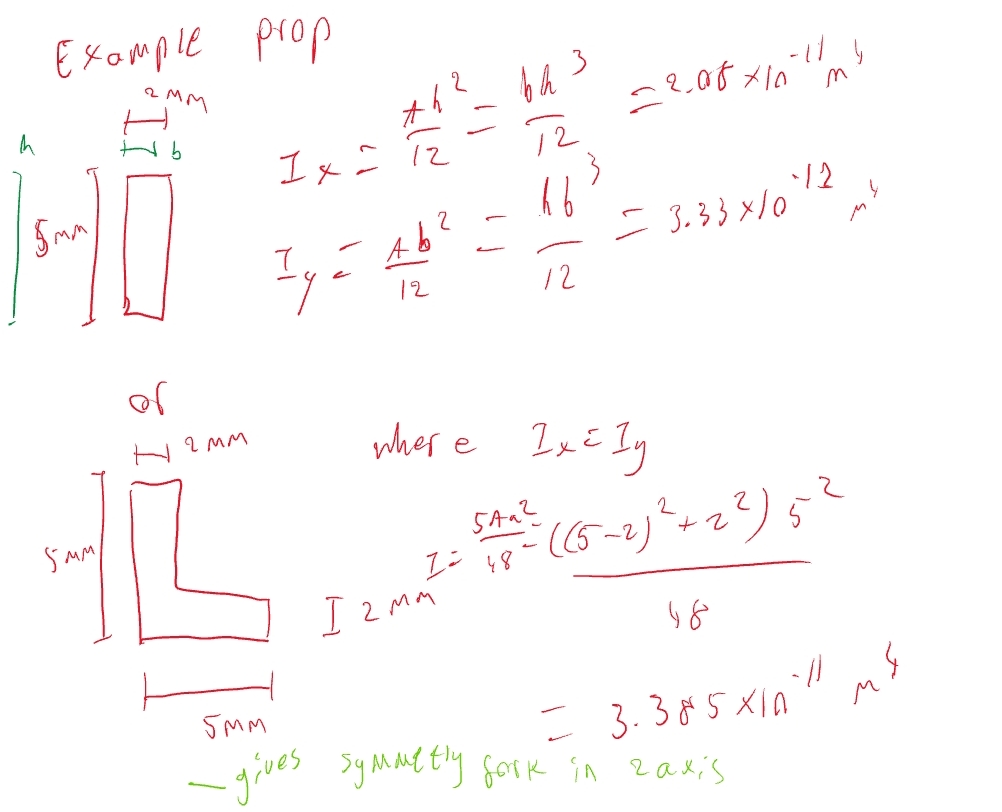 Example prop
2mm
h b
5mm
Ix = Ah²/12 = bh³/12 = 2.08 x10^-11 m^4
Iy = Ab²/12 = hb³/12 = 3.33 x10^-12 m^4
or
2mm
where Ix = Iy
5mm
I = 5Aa²/48 = ((5-2)² + 2²) 5²/48
2mm
5mm
= 3.385 x10^-11 m^4
— gives symmetry fork in 2 axis